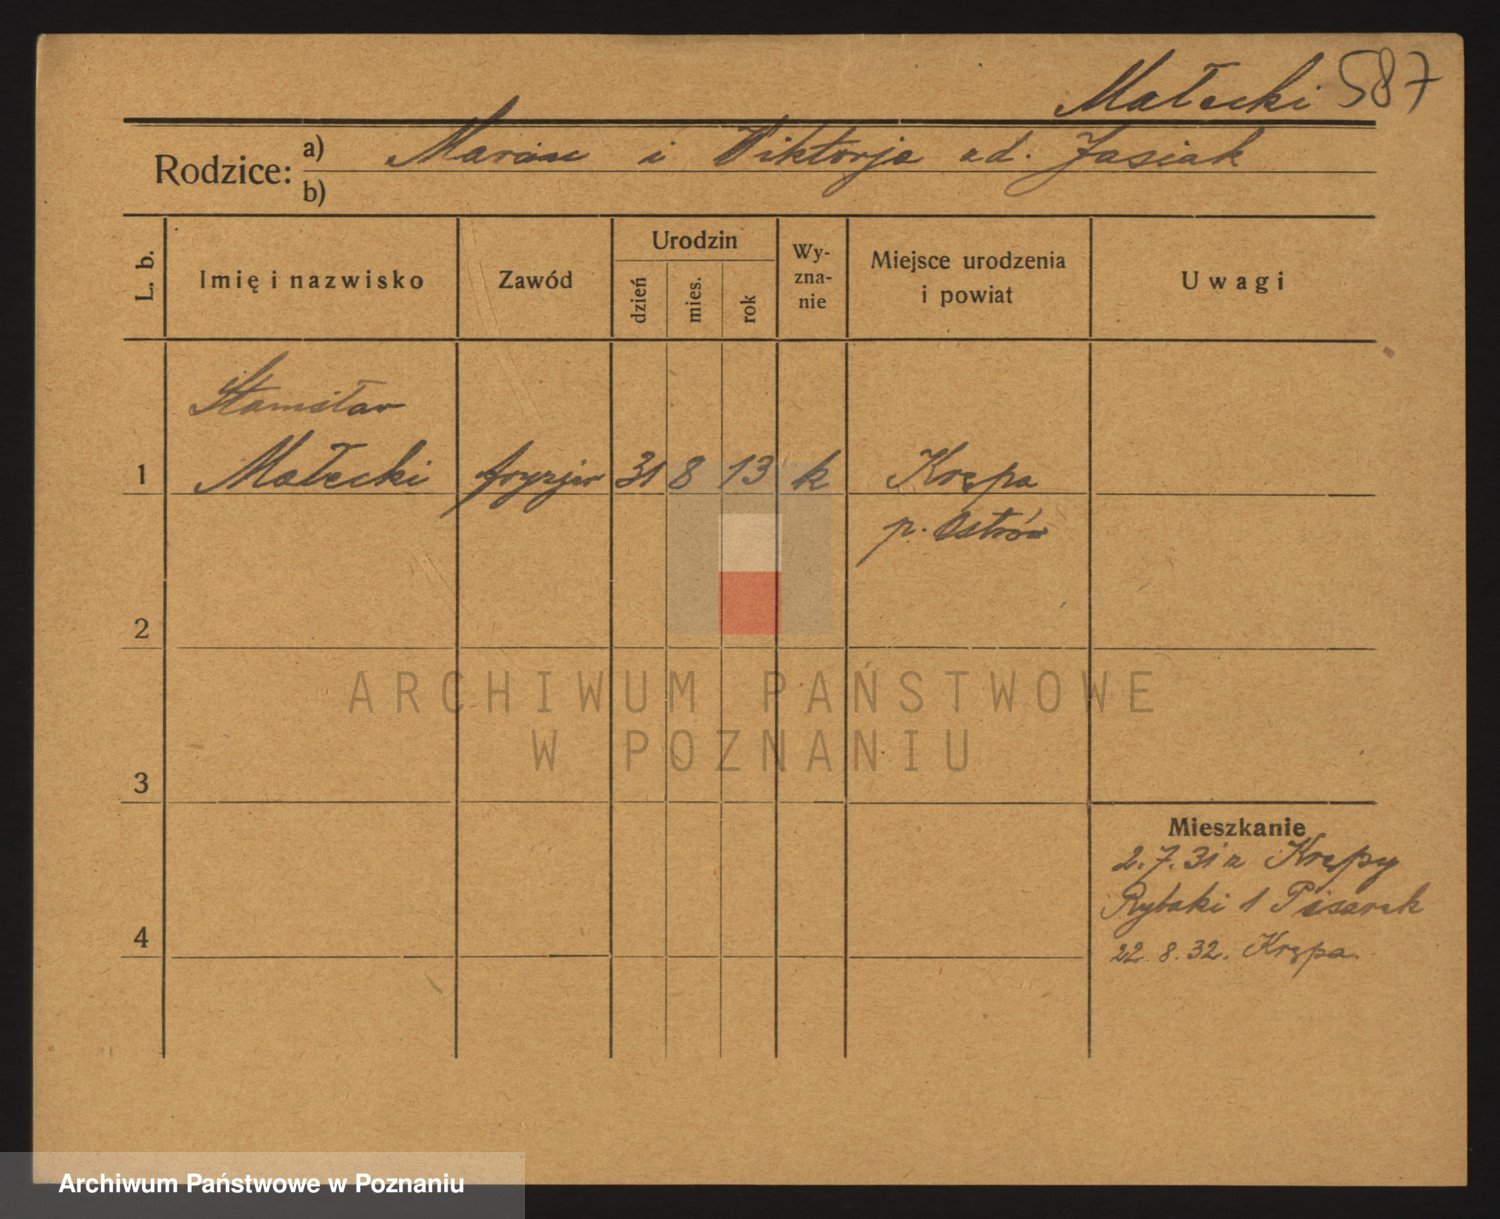 Małecki 587
Rodzice: a) Marcin i Wiktorja zd. Jasiak
b)
L. b.
Imię i nazwisko
Zawód
Urodzin
dzień
mies.
rok
Wy-
zna-
nie
Miejsce urodzenia
i powiat
Uwagi
Stanisław
1 Małecki fryzjer 31 8 13 k Krępa
p. Ostrów
2
3
4
Mieszkanie
2.7.31 z Krępy
Rybaki 1 Pisarek
22.8.32. Krępa.
ARCHIWUM PAŃSTWOWE
W POZNANIU
Archiwum Państwowe w Poznaniu